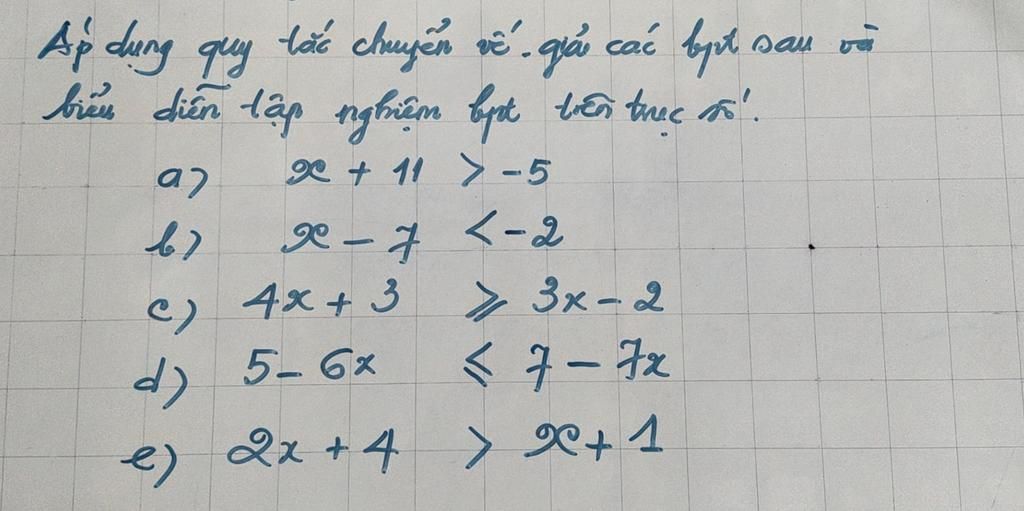 Áp dụng quy tắc chuyển vế. giải các bpt sau và
biểu diễn tập nghiệm bpt trên trục số!
a) x + 11 > -5
b) x - 7 < -2
c) 4x + 3 ⩾ 3x - 2
d) 5 - 6x ⩽ 7 - 7x
e) 2x + 4 > x + 1